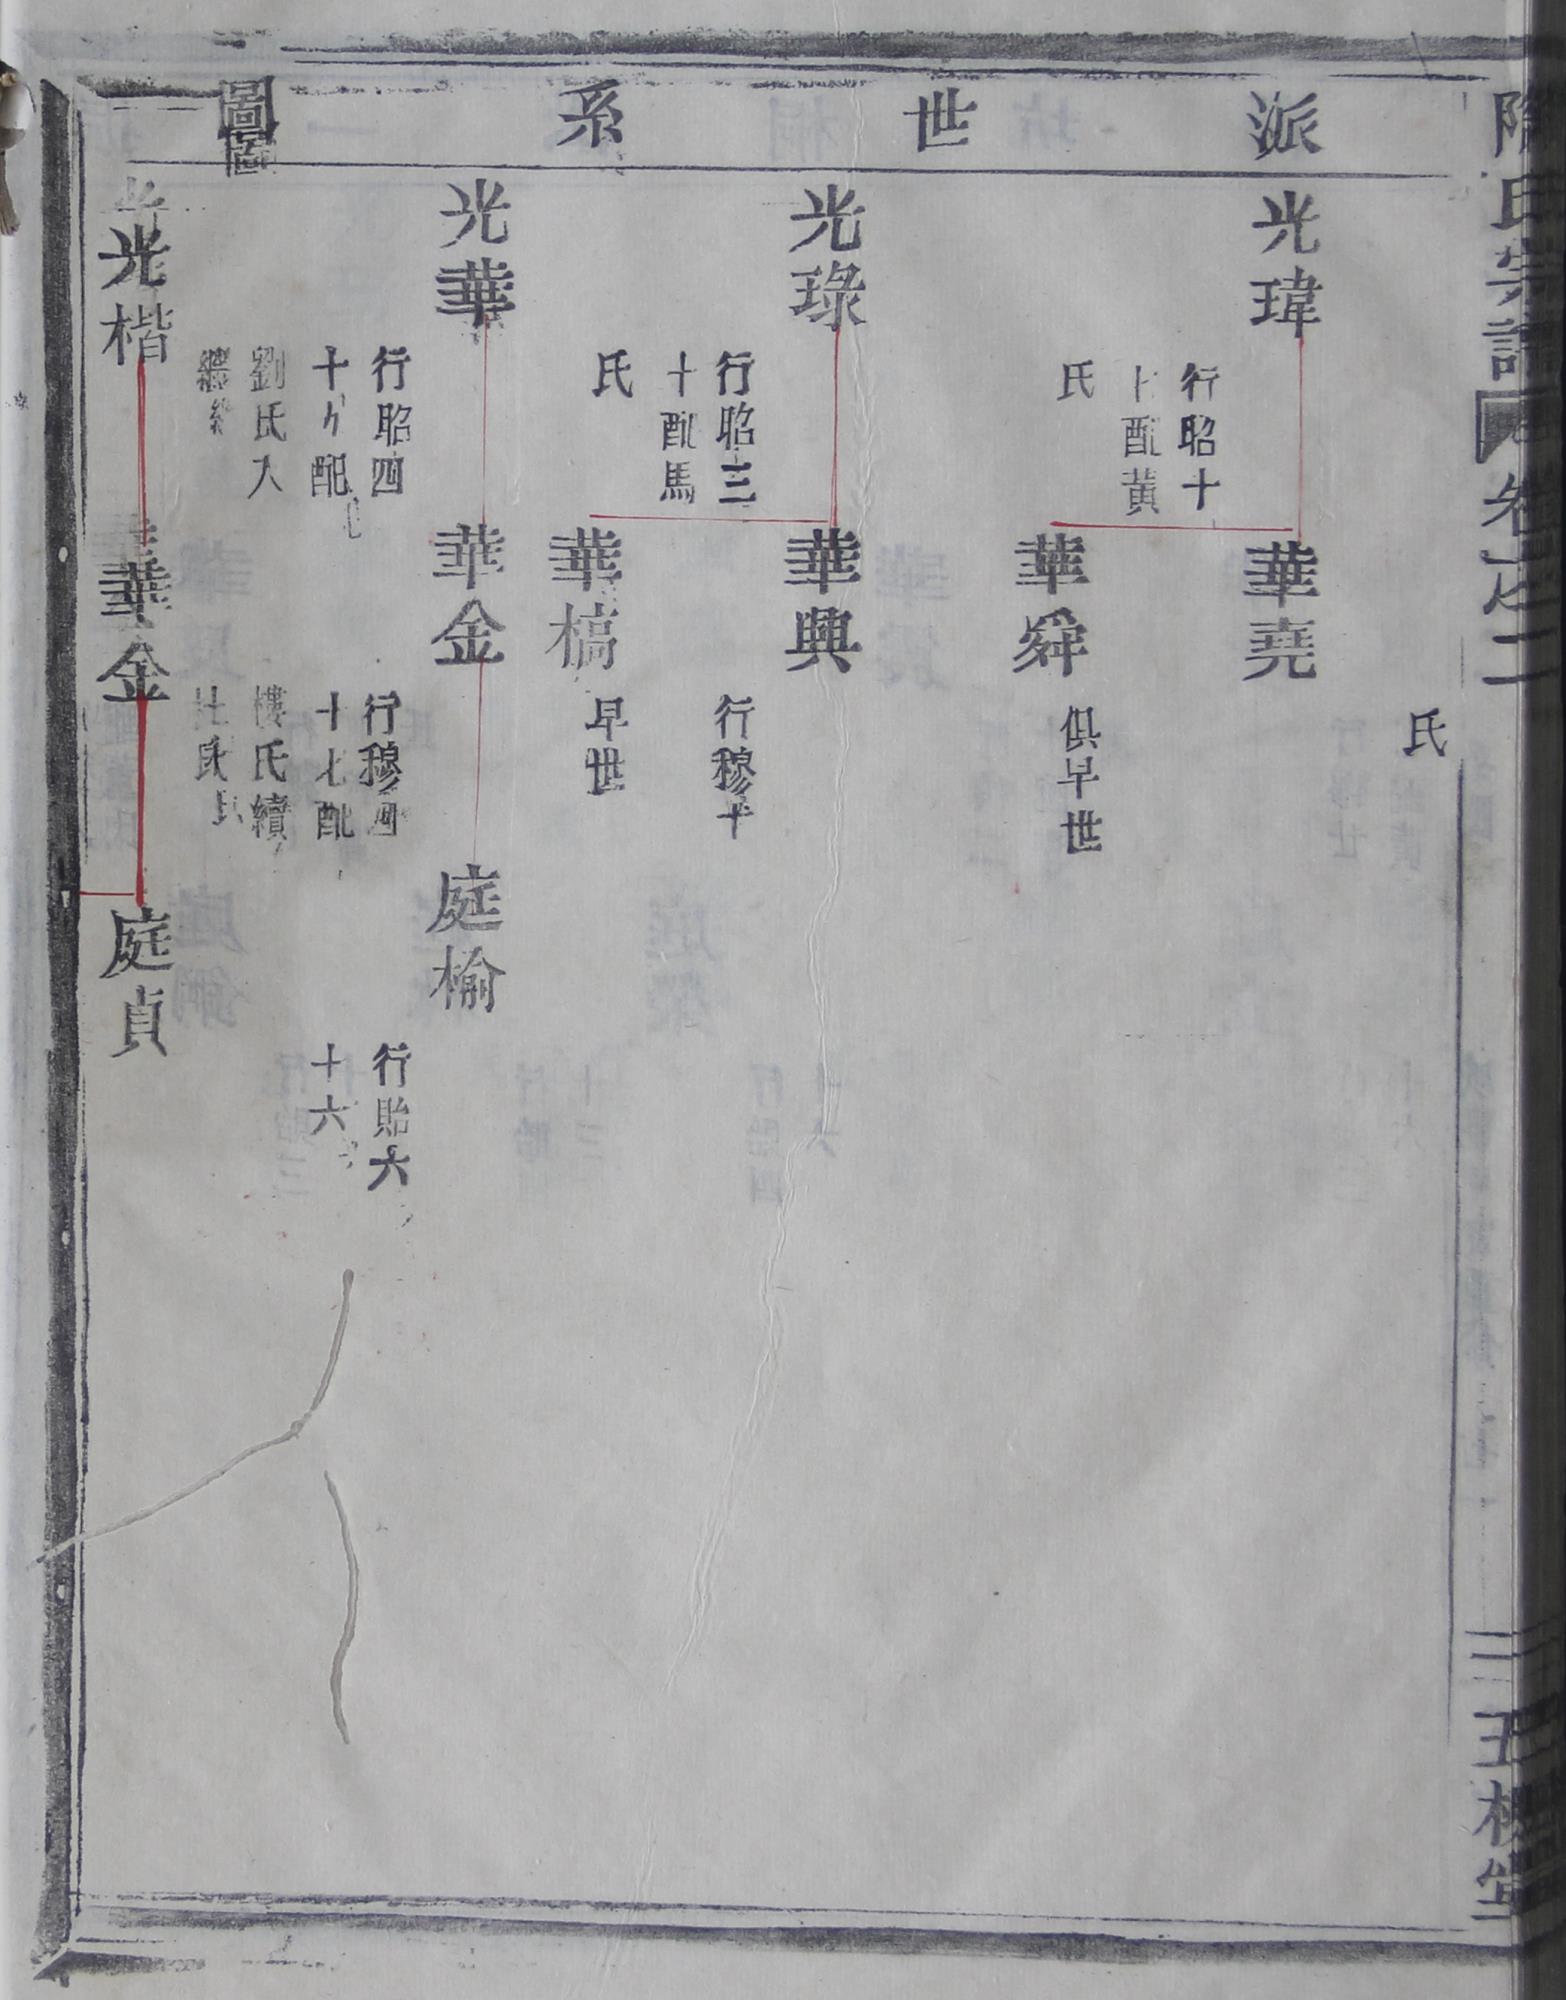 氏宗譜
卷之二
派世系圖
氏
光瑋
行昭十
七配黃
氏
華堯
華舜
俱早世
光琭
行昭三
十配馬
氏
華興
行穆十
華槁
早世
光華
行昭四
十八配
劉氏入
繼
華金
行穆四
十七配
樓氏續
杜氏
庭榆
行貽六
十六
光楷
華金
庭貞